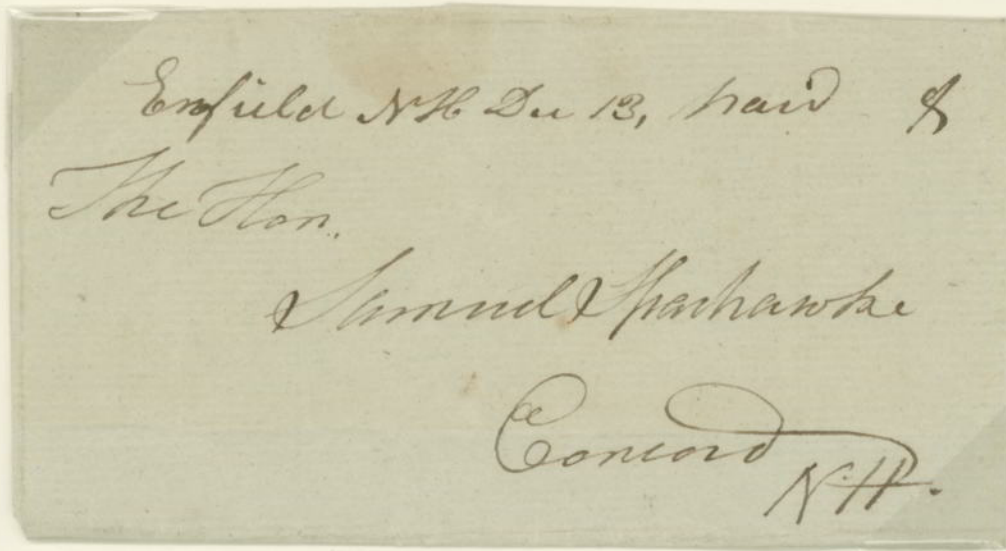 Enfield NH Dec 13, Paid 8
The Hon.
Samuel Sparhawke
Concord
N.H.